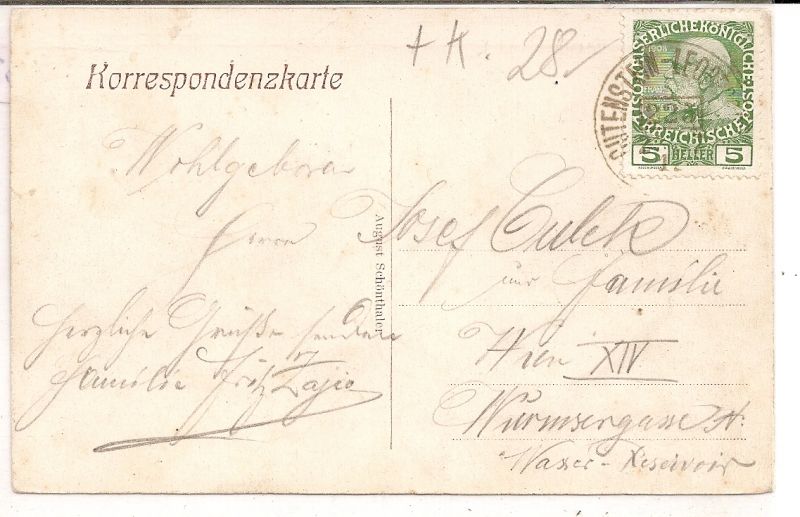 + K. 28
Korrespondenzkarte
KAISERLICHE KÖNIGLICHE
1908
ÖSTERREICHISCHE POST
5 HELLER 5
GUTENSTEIN-LEOB
Wohlgeboren
Herrn
Josef Culek
und Familie
Wien XIV
Wurmsergasse
Wasser-Reseivoir
August Schönthaler
Herzliche Grüße sendet
Familie Fritz Zajic